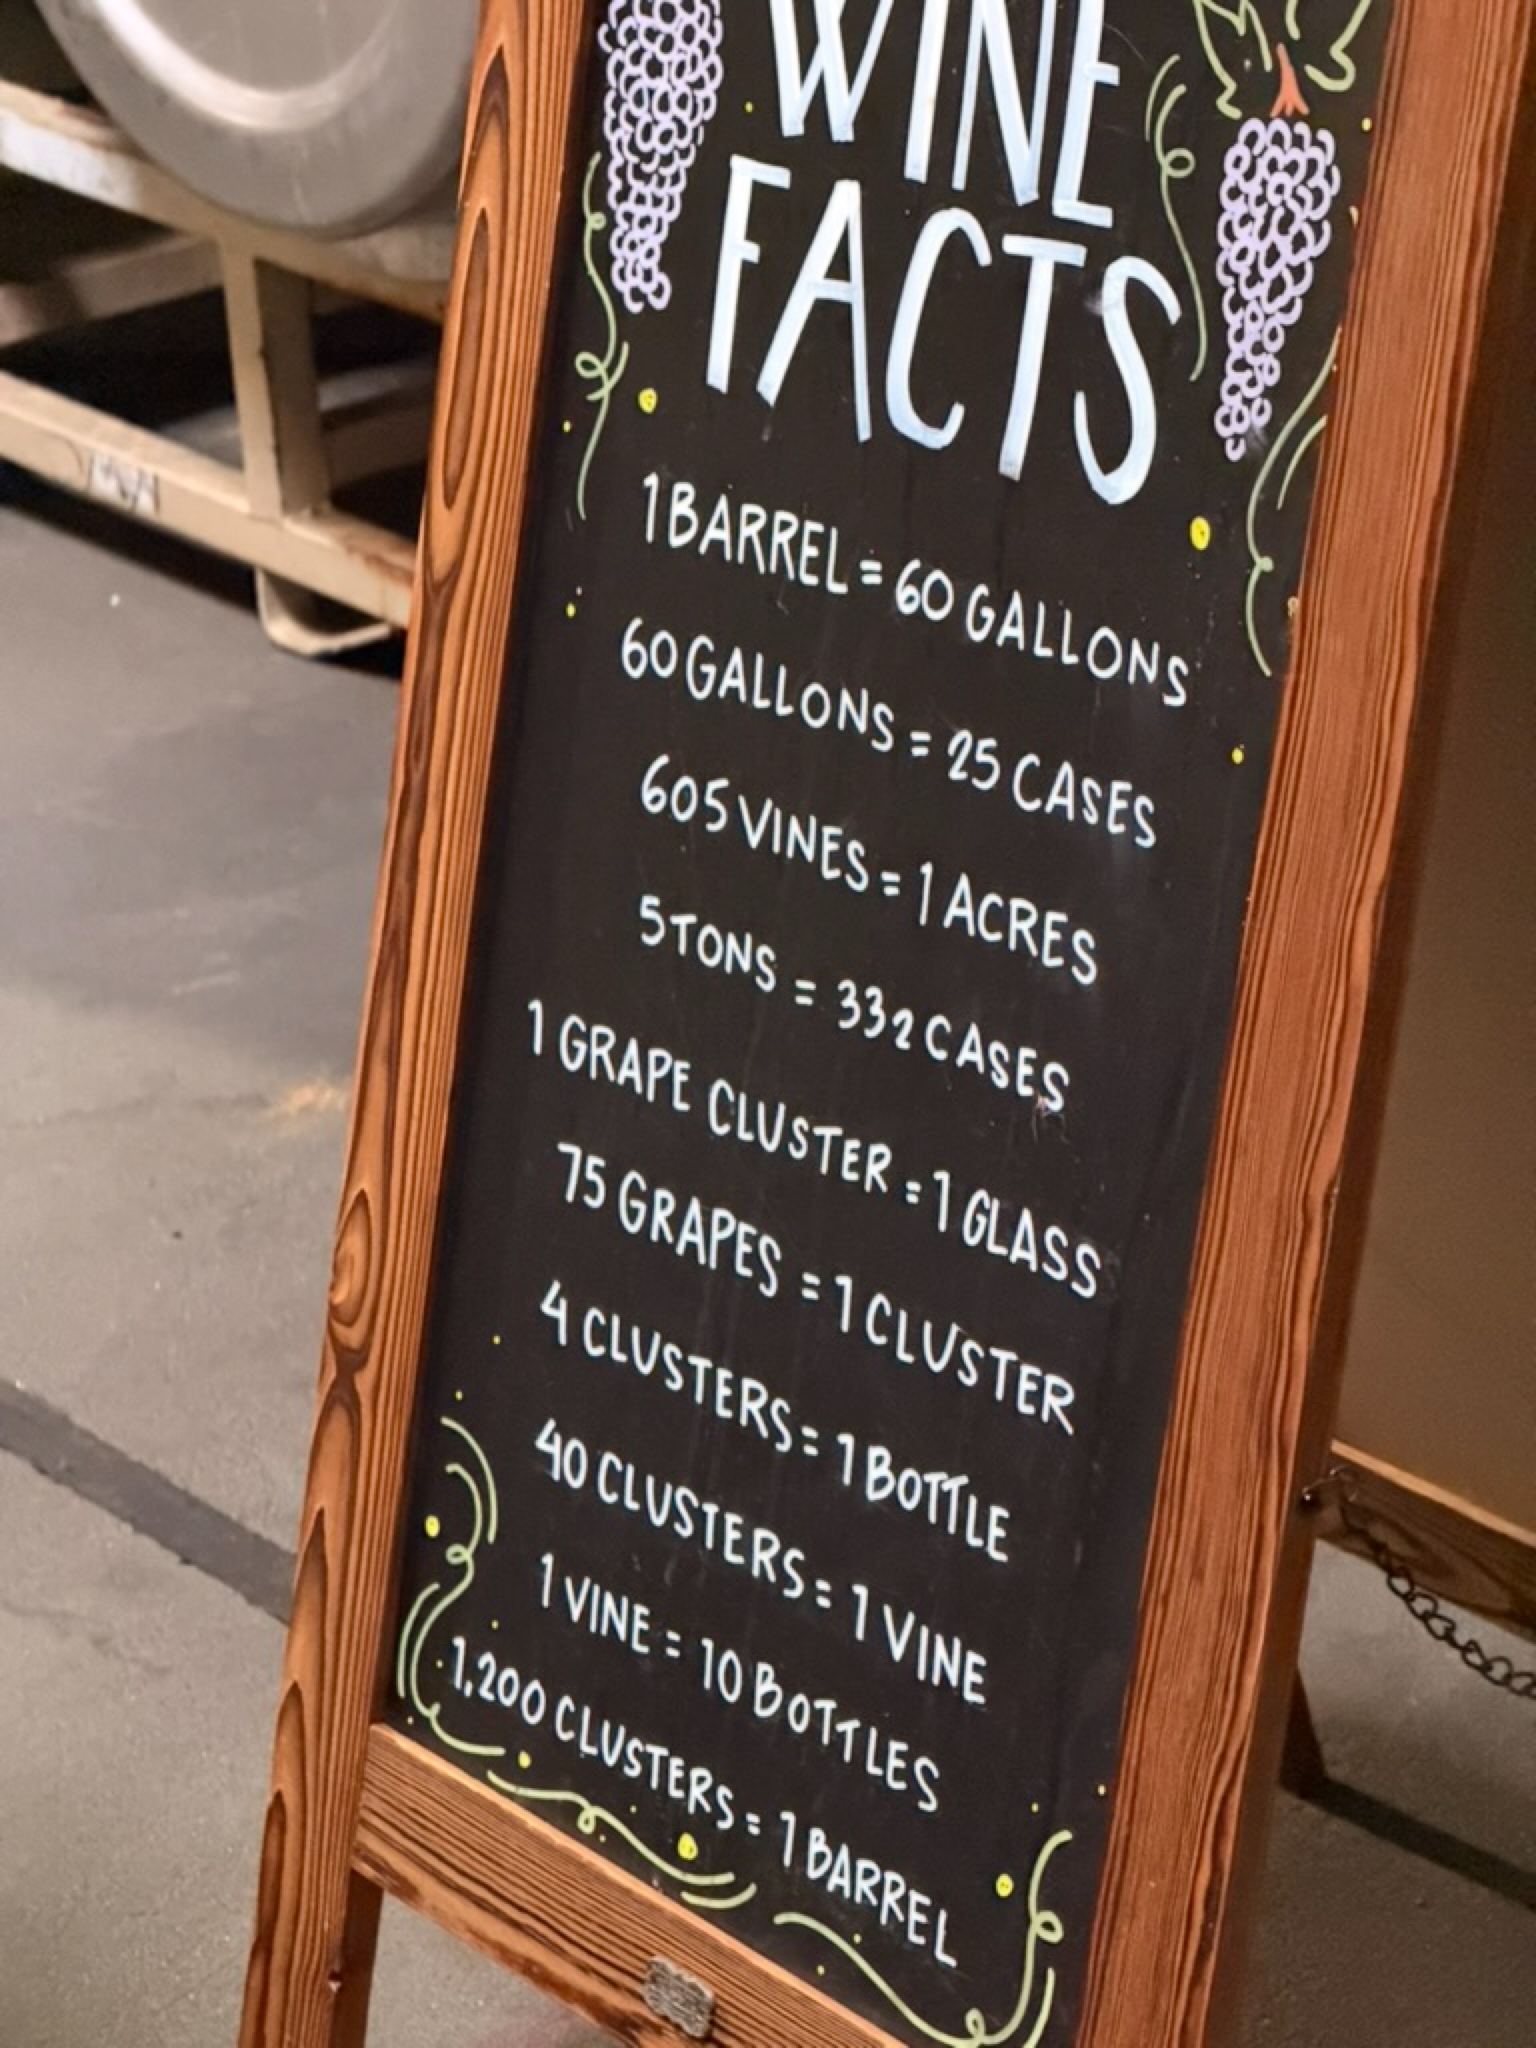 WINE
FACTS
1 BARREL = 60 GALLONS
60 GALLONS = 25 CASES
605 VINES = 1 ACRES
5 TONS = 332 CASES
1 GRAPE CLUSTER = 1 GLASS
75 GRAPES = 1 CLUSTER
4 CLUSTERS = 1 BOTTLE
40 CLUSTERS = 1 VINE
1 VINE = 10 BOTTLES
1,200 CLUSTERS = 1 BARREL